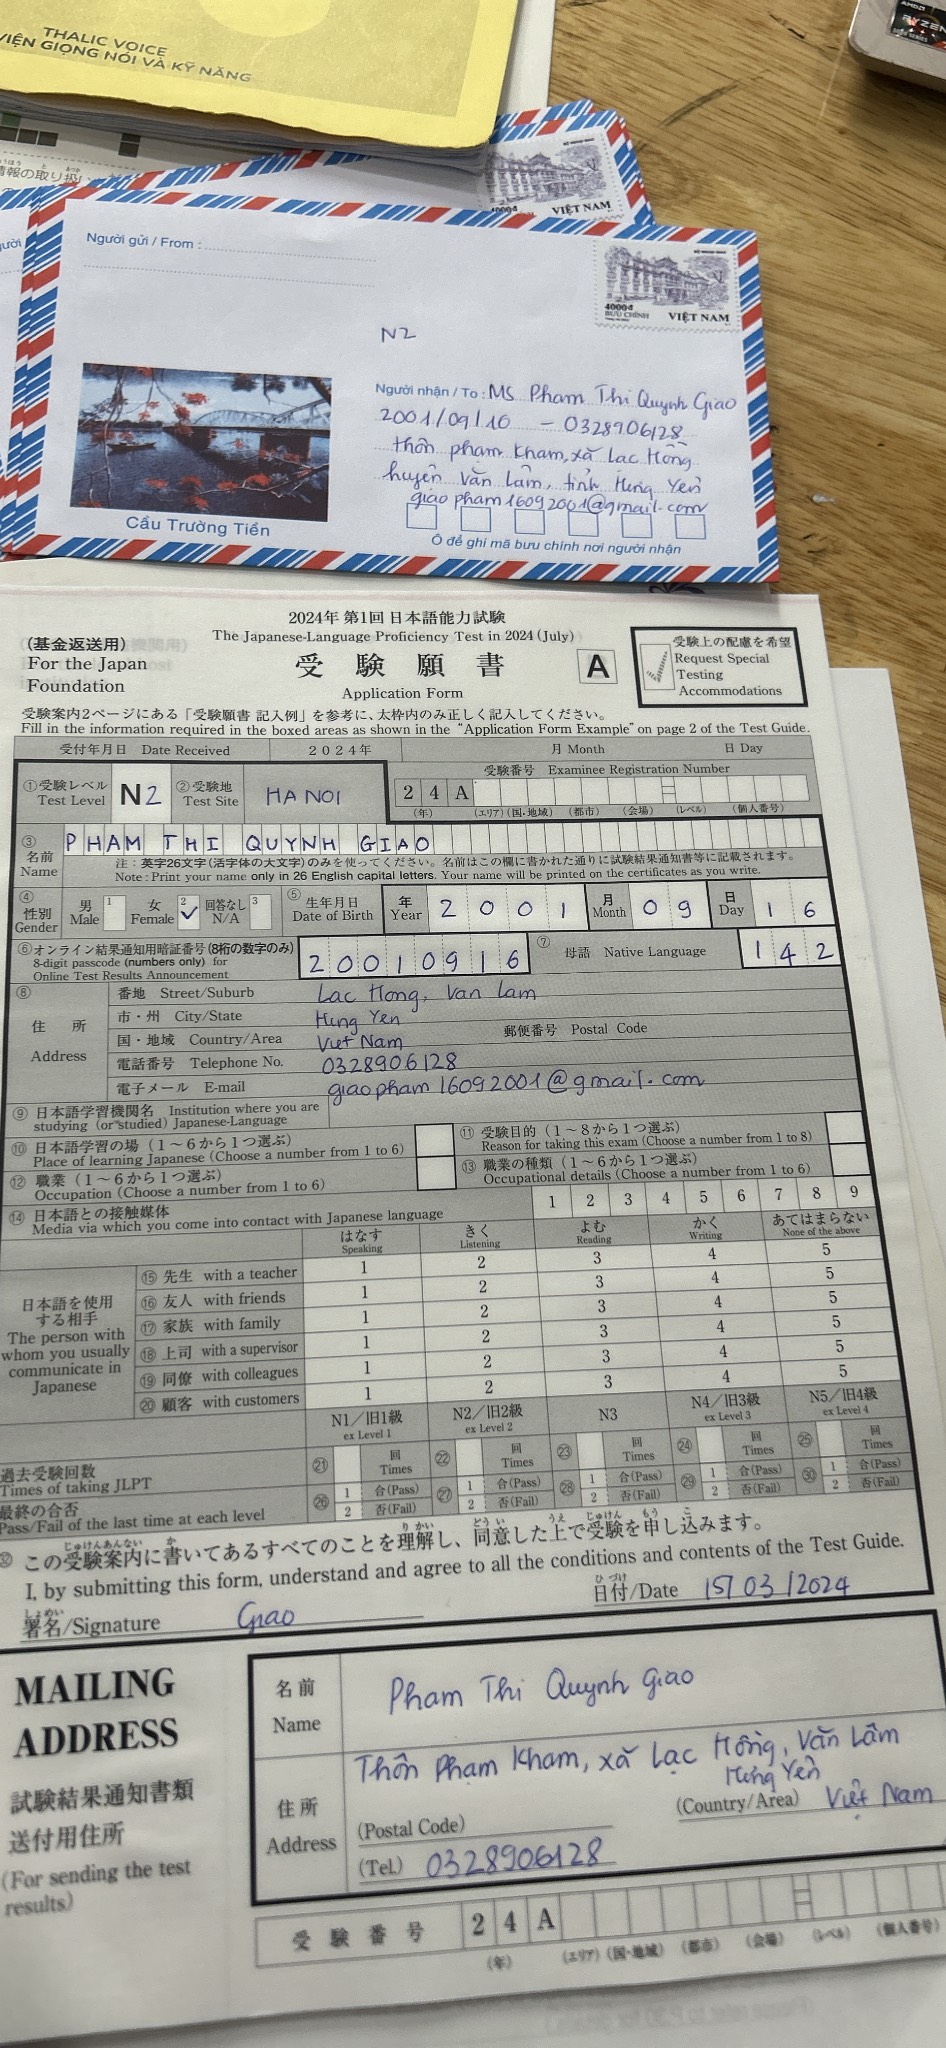 THALIC VOICE
VIỆN GIỌNG NÓI VÀ KỸ NĂNG
AMD
RYZEN
VIỆT NAM
Người gửi / From :
4000đ
BƯU CHÍNH
VIỆT NAM
N2
Người nhận / To : MS Phạm Thi Quynh Giao
2001/09/16 - 0328906128
thôn phạm kham, xã Lạc Hồng
huyện Văn Lâm, tỉnh Hưng Yên
giaopham16092001@gmail.com
Cầu Trường Tiền
Ô để ghi mã bưu chính nơi người nhận
2024年 第1回 日本語能力試験
The Japanese-Language Proficiency Test in 2024 (July)
(基金返送用)
For the Japan
Foundation
受験願書
Application Form
A
受験上の配慮を希望
Request Special
Testing
Accommodations
受験案内2ページにある「受験願書 記入例」を参考に、太枠内のみ正しく記入してください。
Fill in the information required in the boxed areas as shown in the "Application Form Example" on page 2 of the Test Guide.
受付年月日 Date Received 2024年 月 Month 日 Day
①受験レベル Test Level N2 ②受験地 Test Site HA NOI
受験番号 Examinee Registration Number
2 4 A
(年) (エリア) (国・地域) (都市) (会場) (レベル) (個人番号)
③ 名前 Name PHAM THI QUYNH GIAO
注：英字26文字(活字体の大文字)のみを使ってください。名前はこの欄に書かれた通りに試験結果通知書等に記載されます。
Note : Print your name only in 26 English capital letters. Your name will be printed on the certificates as you write.
④ 性別 Gender 男 Male 1 女 Female 2 ✓ 回答なし N/A 3
⑤ 生年月日 Date of Birth 年 Year 2001 月 Month 09 日 Day 16
⑥オンライン結果通知用暗証番号(8桁の数字のみ)
8-digit passcode (numbers only) for
Online Test Results Announcement
20010916
⑦ 母語 Native Language 142
⑧ 住所 Address
番地 Street/Suburb Lac Hong, Van Lam
市・州 City/State Hung Yen
国・地域 Country/Area Viet Nam 郵便番号 Postal Code
電話番号 Telephone No. 0328906128
電子メール E-mail giaopham16092001@gmail.com
⑨ 日本語学習機関名 Institution where you are
studying (or studied) Japanese-Language
⑩ 日本語学習の場 (1～6から1つ選ぶ)
Place of learning Japanese (Choose a number from 1 to 6)
⑪ 受験目的 (1～8から1つ選ぶ)
Reason for taking this exam (Choose a number from 1 to 8)
⑫ 職業 (1～6から1つ選ぶ)
Occupation (Choose a number from 1 to 6)
⑬ 職業の種類 (1～6から1つ選ぶ)
Occupational details (Choose a number from 1 to 6)
⑭ 日本語との接触媒体
Media via which you come into contact with Japanese language
1 2 3 4 5 6 7 8 9
はなす Speaking きく Listening よむ Reading かく Writing あてはまらない None of the above
日本語を使用
する相手
The person with
whom you usually
communicate in
Japanese
⑮ 先生 with a teacher 1 2 3 4 5
⑯ 友人 with friends 1 2 3 4 5
⑰ 家族 with family 1 2 3 4 5
⑱ 上司 with a supervisor 1 2 3 4 5
⑲ 同僚 with colleagues 1 2 3 4 5
⑳ 顧客 with customers 1 2 3 4 5
N1／旧1級 ex Level 1 N2／旧2級 ex Level 2 N3 N4／旧3級 ex Level 3 N5／旧4級 ex Level 4
過去受験回数
Times of taking JLPT
㉑ 回 Times ㉒ 回 Times ㉓ 回 Times ㉔ 回 Times ㉕ 回 Times
最終の合否
Pass/Fail of the last time at each level
㉖ 1 合(Pass) 2 否(Fail) ㉗ 1 合(Pass) 2 否(Fail) ㉘ 1 合(Pass) 2 否(Fail) ㉙ 1 合(Pass) 2 否(Fail) ㉚ 1 合(Pass) 2 否(Fail)
この受験案内に書いてあるすべてのことを理解し、同意した上で受験を申し込みます。
I, by submitting this form, understand and agree to all the conditions and contents of the Test Guide.
署名/Signature Giao
日付/Date 15/03/2024
MAILING
ADDRESS
試験結果通知書類
送付用住所
(For sending the test
results)
名前 Name Pham Thi Quynh Giao
住所 Address Thôn Phạm Kham, xã Lạc Hồng, Văn Lâm
Hưng Yên
(Postal Code) (Country/Area) Việt Nam
(Tel.) 0328906128
受験番号 2 4 A
(年) (エリア) (国・地域) (都市) (会場) (レベル) (個人番号)